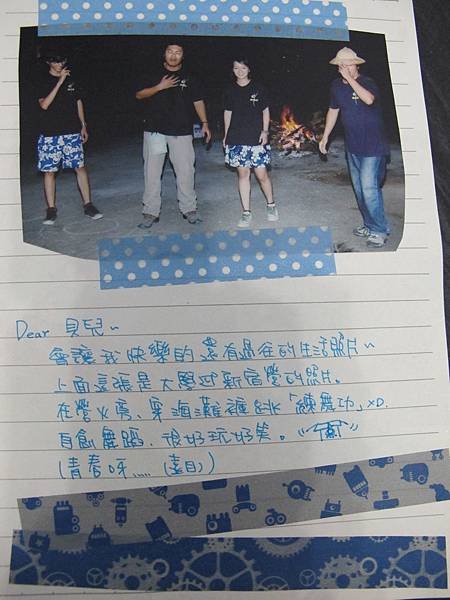 Dear 貝兒~
會讓我快樂的還有過往的生活照片~
上面這張是大學迎新宿營的照片。
在營火旁、穿海灘褲跳「練舞功」XD.
自創舞蹈.很好玩好笑。
(青春呀..... (遠目))